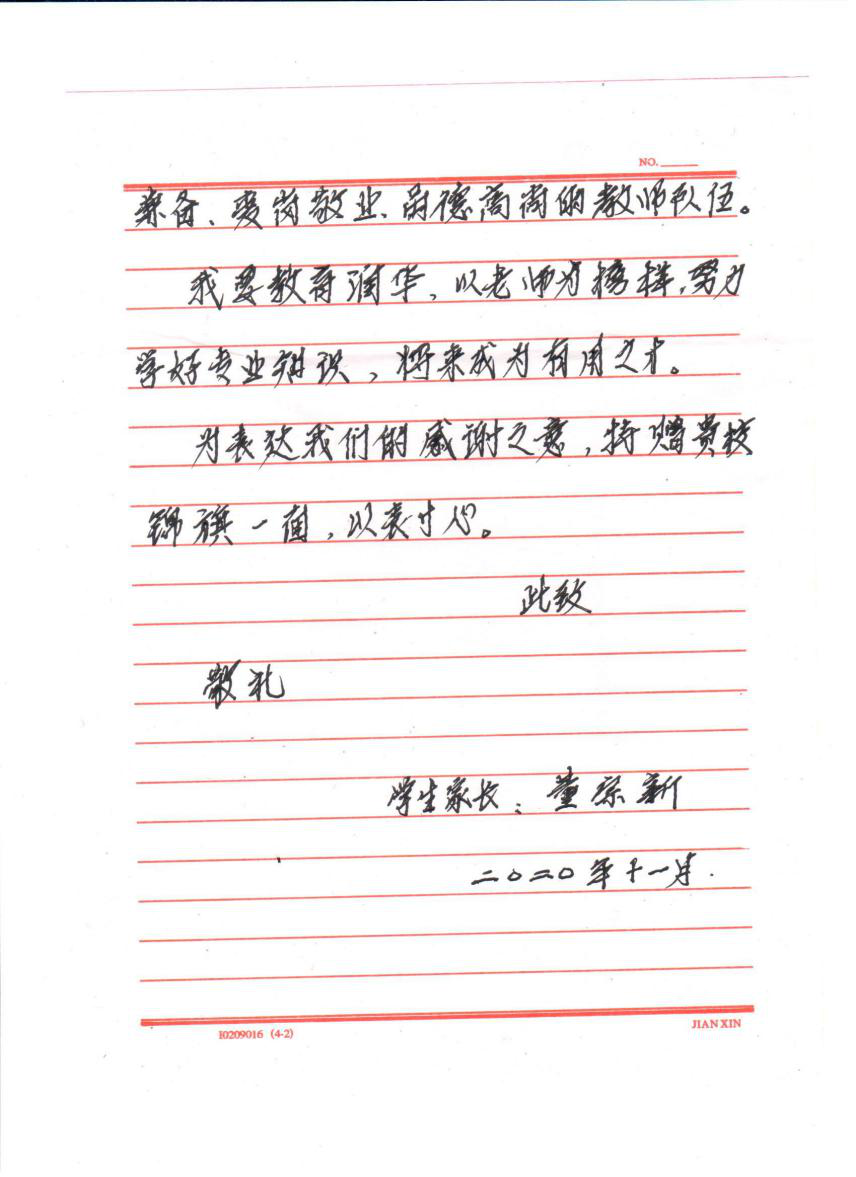 NO.
兼备、爱岗敬业、品德高尚的教师队伍。
我要教育润华，以老师为榜样，努力
学好专业知识，将来成为有用之才。
为表达我们的感谢之意，特赠贵校
锦旗一面，以表寸心。
此致
敬礼
学生家长：董宗新
二〇二〇年十一月.
10209016 (4-2)
JIAN XIN